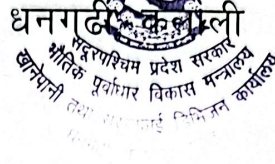 धनगढी, कैलाली
सुदूरपश्चिम प्रदेश सरकार
भौतिक पूर्वाधार विकास मन्त्रालय
खानेपानी तथा डिभिजन कार्यालय